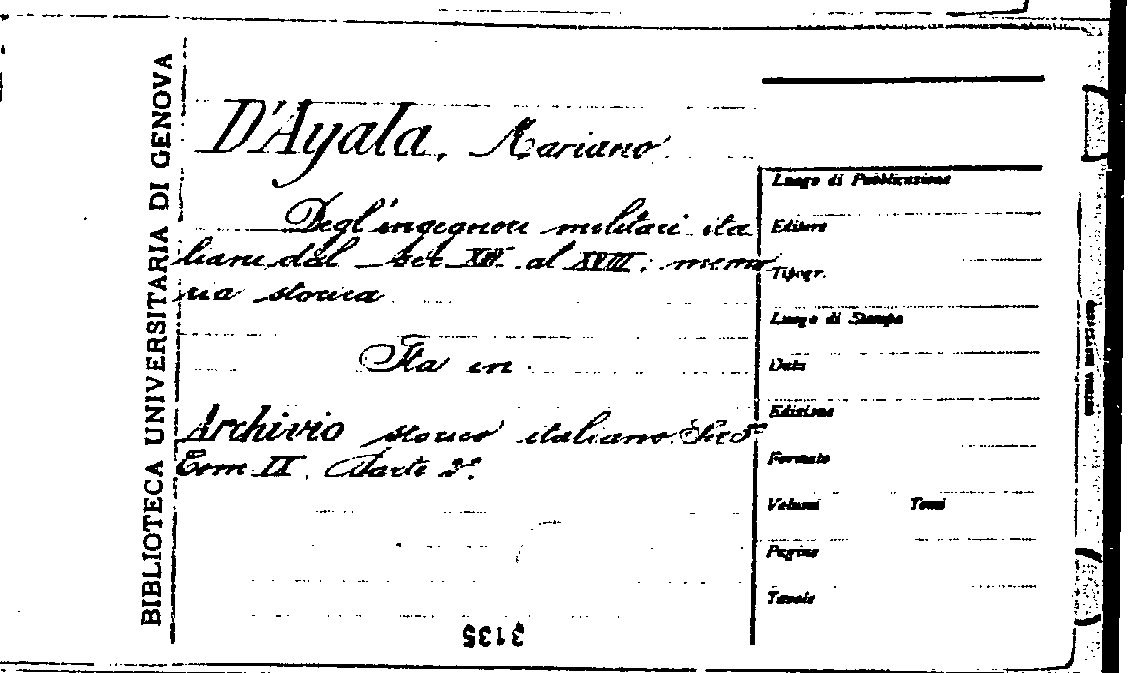 BIBLIOTECA UNIVERSITARIA DI GENOVA
D'Ayala, Mariano
Degl'ingegneri militari ita
liani dal sec XIII al XVIII: memo
ria storica
Sta in
Archivio storico italiano Ser 3ª
Tom IX. Parte 2ª.
3135
Luogo di Pubblicazione
Editore
Tipogr.
Luogo di Stampa
Data
Edizione
Formato
Volumi Tomi
Pagine
Tavole